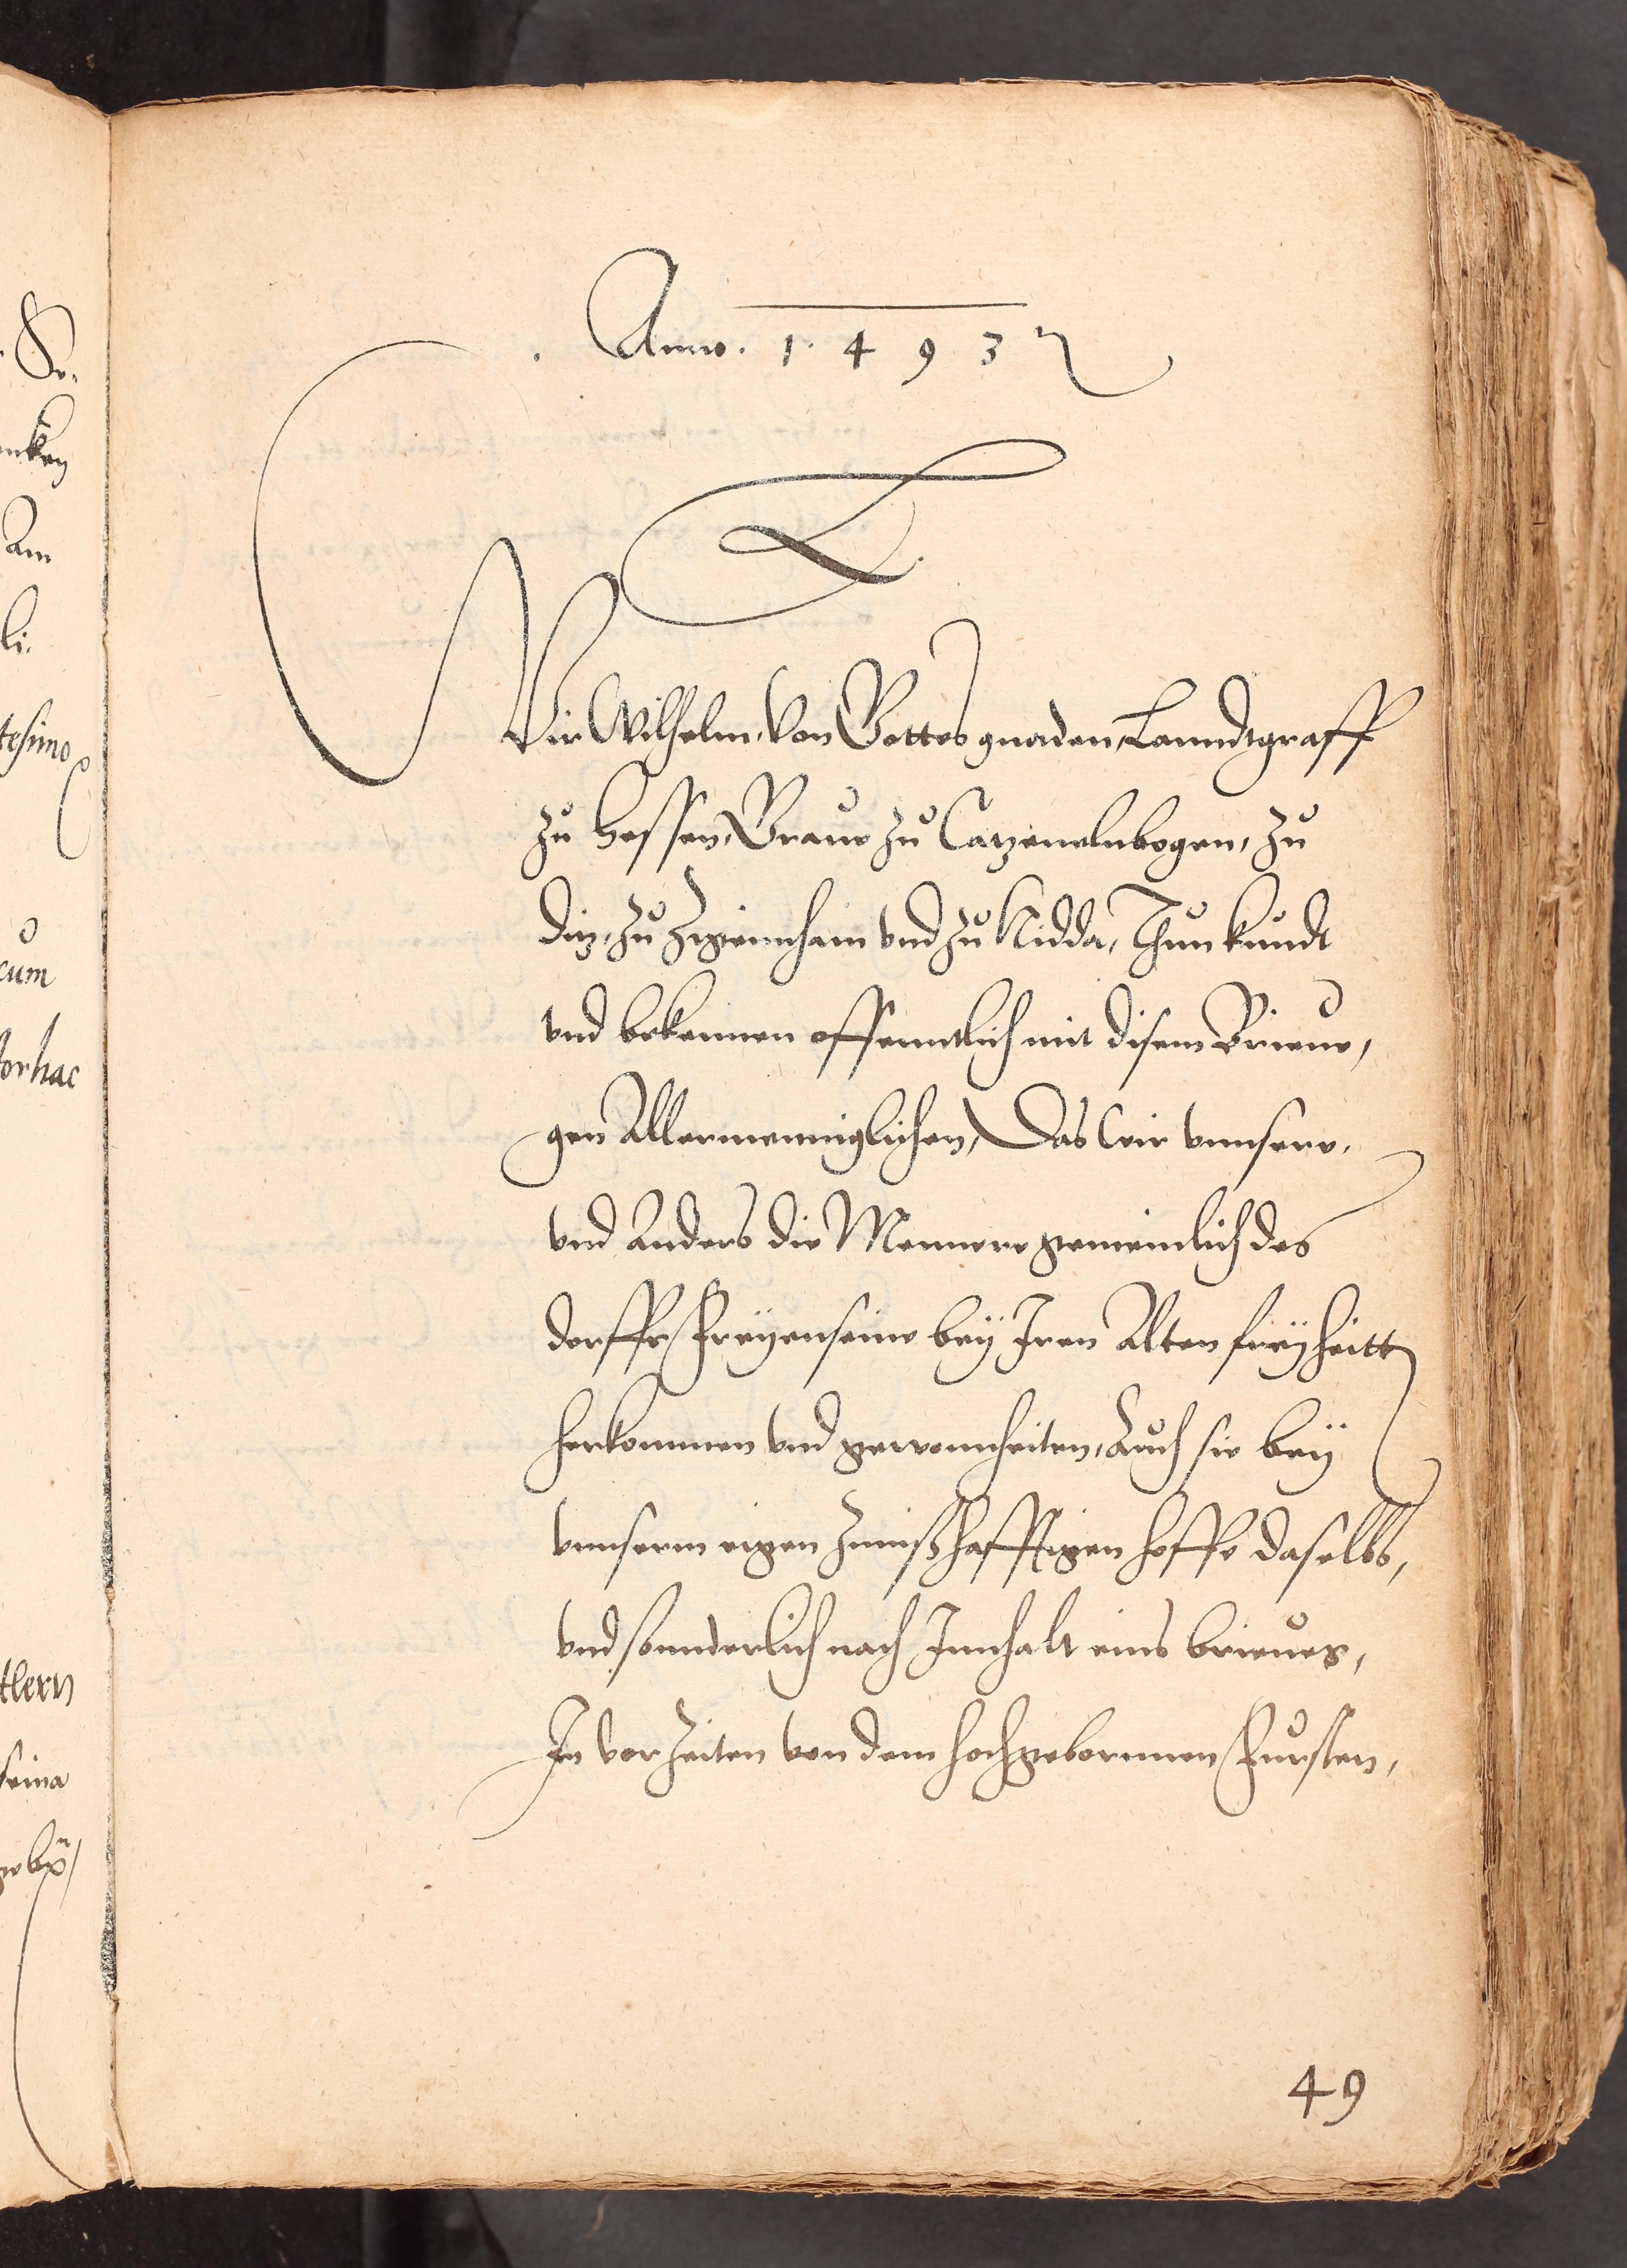 Anno. 1. 4 9 3
Wir Wilhelm, Von Gottes gnaden, Lanndtgraff
zu hessen, Graue zu Catzenelnbogen, zu
Dietz, zu Ziegennhain vnd zu Nidda, Thun kundt
vnd bekennen offenntlich mit disem Brieue,
gen Allermenniglichen, Das wir vnnsere.
vnd Anders die Mennere gemeinlich des
dorffs Freyenseine bey Iren Alten freyheitt
herkommen vnd gewonnheiten, Auch sie bey
vnnserm eigen Zinnßhafftigen hoffe daselbs,
vnd sonnderlich nach Innhalt eins brieues,
In vor Zeiten von dem hochgebornnen Fursten,
49
tesimo
cum
li.